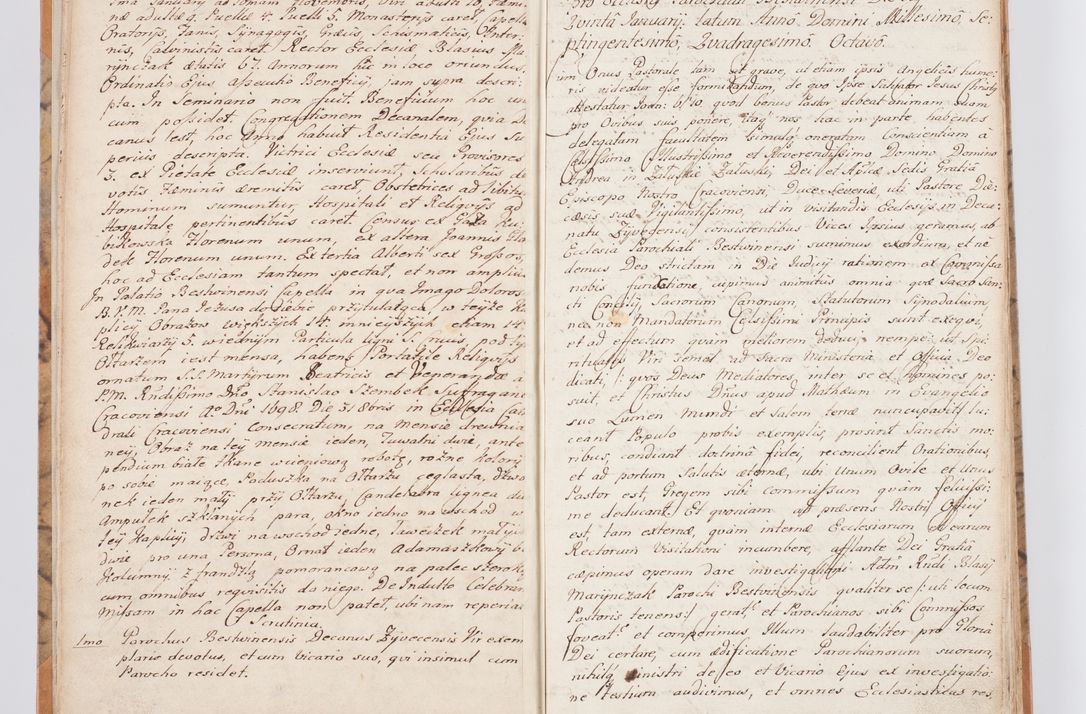 næ adultæ q. Puellæ 4. Puelli 5. Monasterijs caret, Capella
Oratorijs, Fanis, Synagogis, Græcis, Schismaticis,
nis, Calvinistis caret. Rector Ecclesiæ Blasius Ma
rynczak ætatis 67. Annorum hic in loco oriundus,
Ordinatio Ejus, assecutio Beneficij jam supra descri-
pta. In Seminario non fuit. Beneficium hoc un
cum possidet congrectionem Decanalem, quia De
canus est, hoc Anno habuit Residentia Ejus Su
perius descripta. Victrici Ecclesiæ seu Provisores
3. ex Pietate Ecclesiæ inserviunt, Scholaribus de
votis Fæminis æremitis caret, Obstetrices ad libitum
Hominum sumuntur, Hospitali et Religiosis ad
Hospitale pertinentibus caret. Census ex Gaza Ku
bikowska Florenum unum, ex altera Joannis Gla
dek Florenum unum. Ex tertia Alberti sex Grossos,
hoc ad Ecclesiam tantum spectat, et non amplius
In Palatio Bestvinensi Capella in qua Imago Doloros
B. V. M. Pana Jezusa do siebie przytulaiąca, w teyże Ka
plicy Obrazow większych 14. mnieyszych etiam 14.
Relikwiarzy 5. w iednym Particula Ligni S. Crucis, pod ty
Ołtarzem iest mensa, habens Portatile Religijs
ornatum S.S. Martyrum Beatricis et Venerandæ a
P.M. Rndissimo Dno Stanislao Szembek Suffragane
Cracoviensi Ao Dni 1698. Die 31 8bris in Ecclesia Cat
drali Cracoviensi Consecratum, na Mensie drewnia
ney, Obraz na tey mensie ieden, Tuwalni dwie, ante
pendium białe tkane w cieniową robotę, rożne kolory
po sobie maiące, Paduszka na Ołtarzu ceglasta, dzwo
nek ieden mały przy Ołtarzu, Candelabra lignea du
Ampułek szklanych para, okno iedno na wschod w
tey Kaplicy, drzwi na wschod iedne, ławeczek małych
dwie pro una Persona, Ornat ieden Adamaszkowy b.
Kolumny z frandzlą pomorancową na palec szeroką
cum omnibus requisitis do niego. De Indulto Celebran
Missam in hac Capella non patet, ubi nam reperia
Scrutinia.
1mo Parochus Bestvinensis Decanus Zÿwecensis Vir exem
plarie devotus, et cum Vicario suo, qui insimul cum
Parocho residet.
Quinta Januarij. Latum Anno, Domini Millesimo, Se-
ptingentesimo, Quadragesimo, Octavo.
Cum Onus Pastorale tam sit grave, ut etiam ipsis Angelicis hume-
ris videatur esse formidandum, de quo Ipse Salvator Jesus Christus
attestatur Joan: 6. 10. quod bonus Pastor debeat animam suam
pro Ovibus suis ponere, itaq nos hac in parte, habentes
delegatam facultatem simulq oneratam Conscientiam a
Celsissimo Illustrissimo et Reverendissimo Domino Domino
Andrea in Załuskie Załuski, Dei et Aplicæ Sedis Gratia
Episcopo Nostro Cracoviensi Duce Severiæ, uti Pastore Diæ-
cæsis suæ Vigilantissimo, ut in visitandis Ecclesijs in Deca-
natu Zÿvecensi consistentibus Vices Ipsius geramus, ab
Ecclesia Parochiali Bestvinensi sumimus exordium, et ne
demus Deo strictam in Die Judicij rationem ex Commissa
nobis functione, cupimus animitus omnia quæ Sacro San-
cti Concilij, Sacrorum Canonum, Statutorum Synodalium,
nec non Mandatorum Celsissimi Principis sunt exequi,
et ad effectum quam meliorem deduci, nempe: ut Spi-
rituales Viri semel ad Sacra Ministeria, et Officia Deo
dicati, /: quos Deus Mediatores, inter se et Homines po-
suit, et Christus Dnus apud Mathæum in Evangelio
suo Lumen Mundi et Salem terræ nuncupabit/ lu-
ceant Populo probis exemplis, prosint Sanctis mo-
ribus, condiant doctrina fidei, reconcilient Orationibus,
et ad portum Salutis æternæ, ubi Unum Ovile et Unus
Pastor est, Gregem sibi commissum quam felicissi-
me deducant. Et quoniam ad præsens Nostri Officij
est, tam externæ, quam internæ Ecclesiarum et earum
Rectorum Visitationi incumbere, afflante Dei Gratia
cæpimus operam dare investigationi Adm Rndi Blasij
Marynczak Parochi Bestvinensis qualiter se /: uti locum
Pastoris tenens:/ gerat, et Parochianos sibi Commissos
foveat et comperimus, Illum laudabiliter pro Gloria
Dei certare, cum ædificatione Parochianorum suorum,
nihilq sinistri de eo et Vicario Ejus ex investigatio-
ne Testium audivimus, et omnes Ecclesiasticus res,